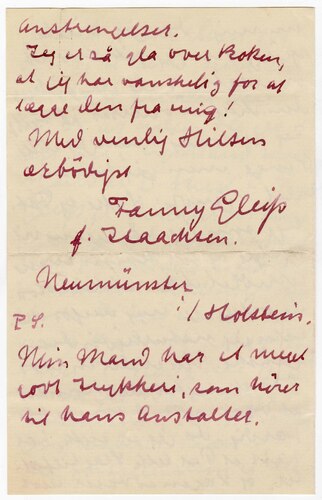 Anstrengelser.
Jeg er så gla over Boken,
at jeg har vanskelig for at
lægge den fra mig!
Med venlig Hilsen
ærbödigst
Fanny Gleiss
f. Isaachsen.
Neumünster
i/Holstein.
P.S.
Min Mand har et meget
godt Trykkeri, som hörer
til hans Anstalter.